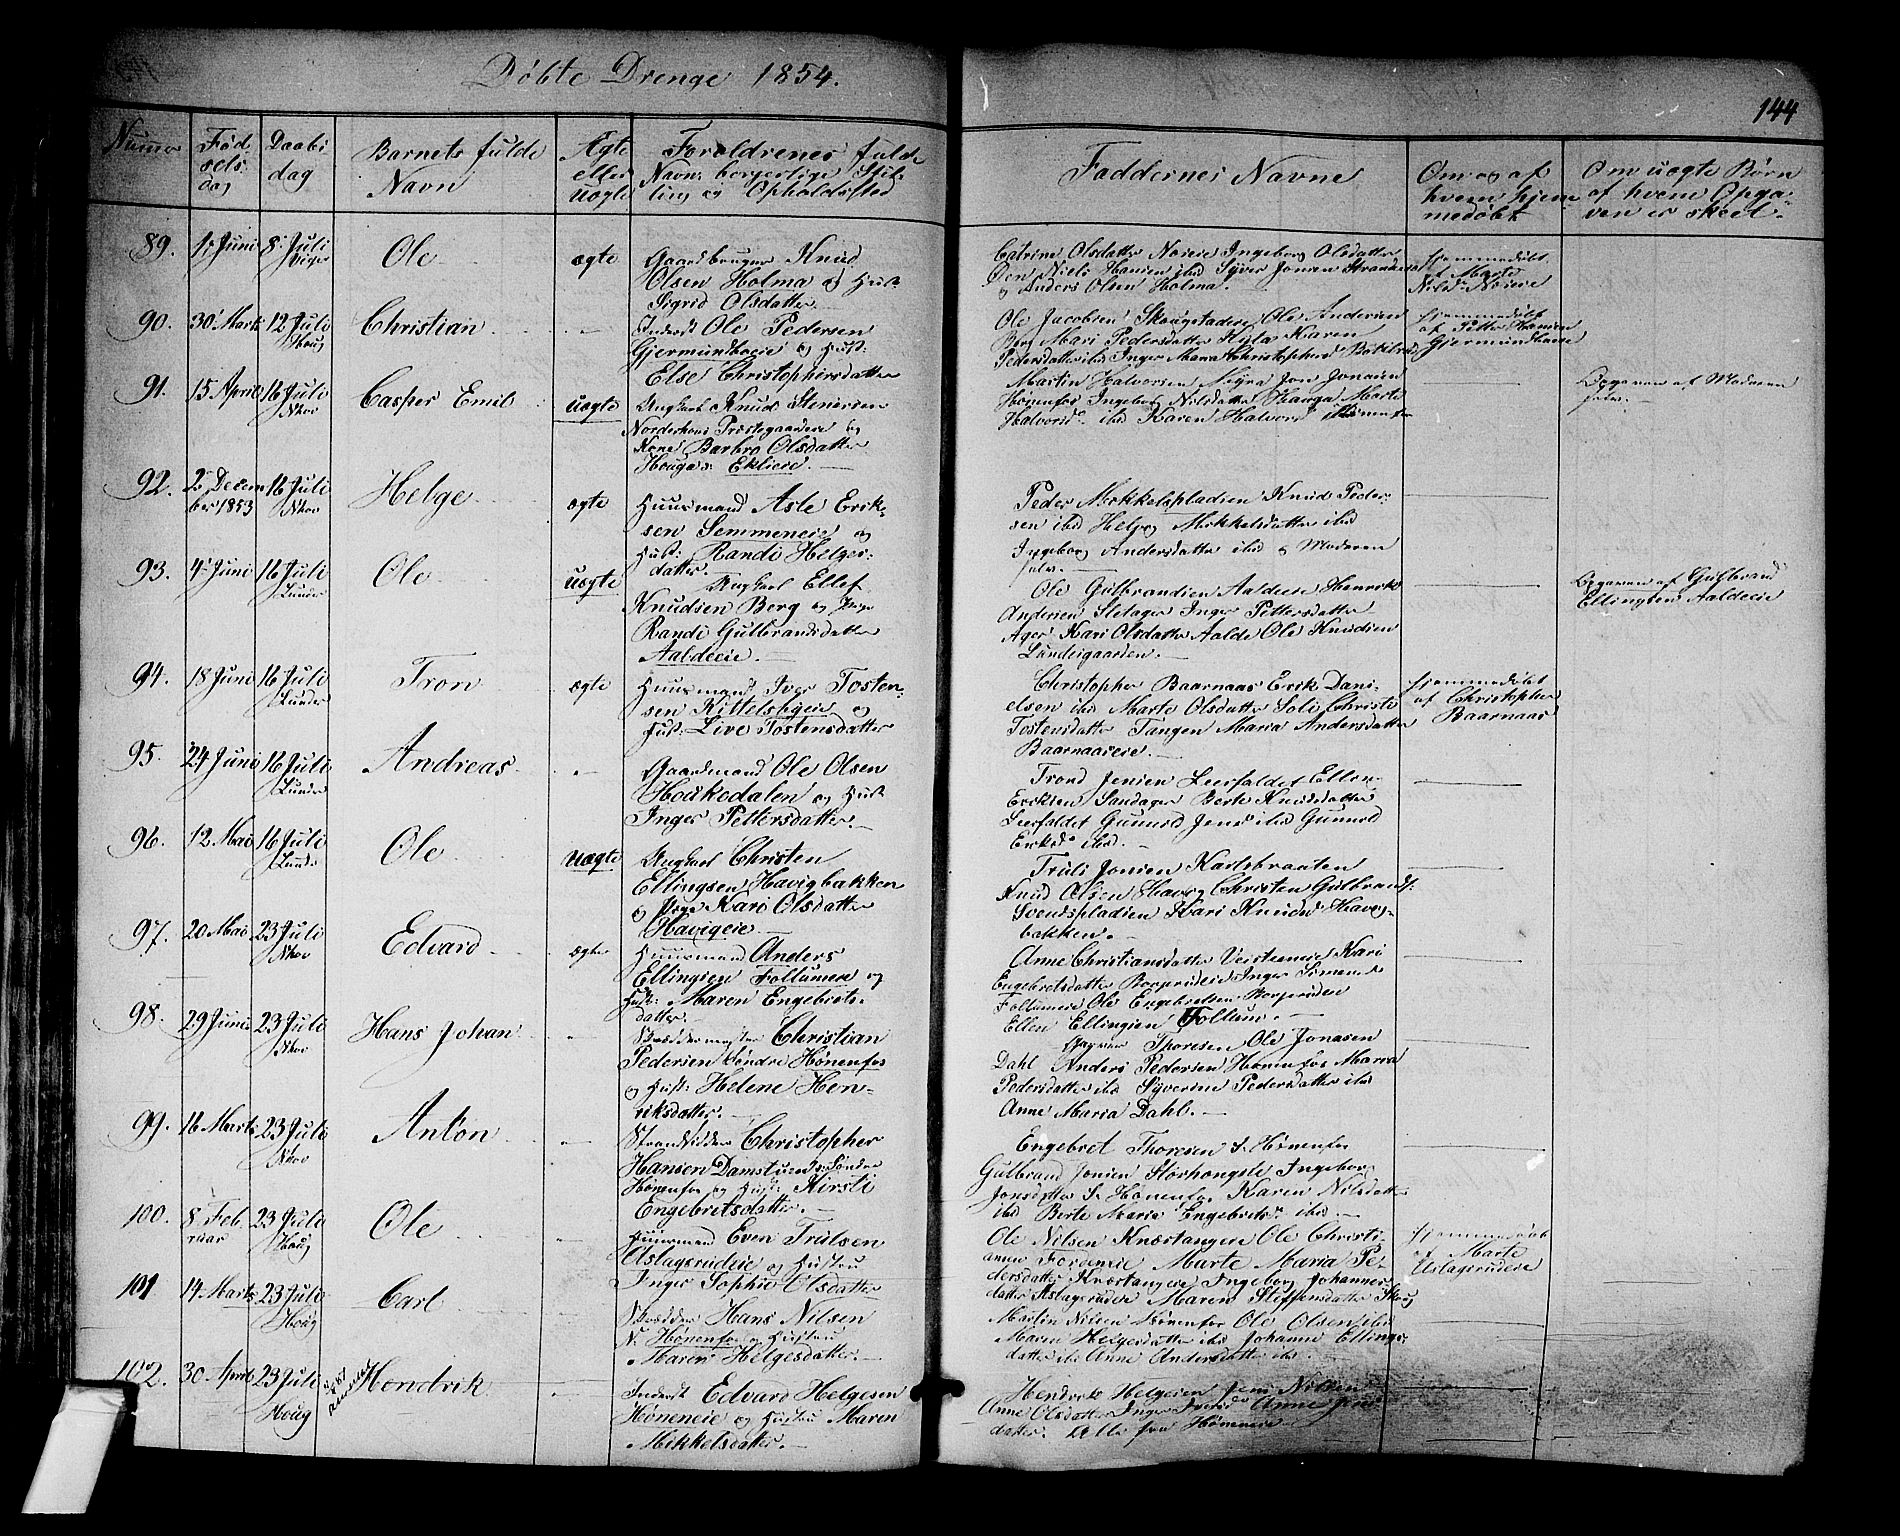 Døbte Drenge 1854.
144
Numer
Fødselsdag
Daabsdag
Barnets fulde Navn
Ægte eller uægte
Forældrenes fulde Navn, borgerlige Stilling og Opholdssted
Faddernes Navne
Om og af hvem hjemmedøbt
Om uægte Børn af hvem Opgaven er skeet.
89. 1. Juni 8. Juli Ole ægte Gaardbruger Knud
Olsen Holma og Hust:
Sigrid Olsdatter
Catrine Olsdatter Ingeborg Olsdatter
Niels Hansen ibid Syver Jonsen
og Anders Olsen Holma.
hjemmedøbt
af Marte
90. 30 Marts 12 Juli Houg Christian Inderst Ole Pedersen
Gjermundboeie og Hust:
Else Christophersdatter
Ole Jacobsen Skougstadeie Ole Andersen
Berg Mari Pedersdatter Hyla Karen
Pedersdatter ibid Inger Maria Christophers
hjemmedøbt
af Petter Hansen
91. 15 April 16 Juli Nhov Casper Emil uægte Ungkarl Knud Stenersen
Norderhovs Præstegaardeie og
Kone Barbro Olsdatter
Hougs: Eklieie.
Martin Halvorsen Myra Jon Jonsen
Hønenfos Ingeborg Nilsdatter Hauga Marte
Halvorsd. ibid Karen Halvorsd ibid
Opgaven af Moderen
selv.
92. 2. December 1853 16 Juli Nhov Helge ægte Huusmand Asle Erik-
sen Semmeneie og
Hust: Randi Helges-
datter.
Peder Mokkelspladsen Knud Peder-
sen ibid Helge Mikkelsdatter ibid
Ingeborg Andersdatter ibid og Moderen
selv.
93. 4. Juni 16 Juli Lunder Ole uægte Ungkarl Ellef
Knudsen Berg og Pige
Randi Gulbrandsdatter
Aaldeeie.
Ole Gulbrandsen Aaldeeie Henrik
Andersen Sletager Inger Pettersdatter
Ager Kari Olsdatter Aalde Ole Knudsen
Lundesgaarden.
Opgaven af Gulbrand
Ellingsen Aaldeeie
94. 18 Juni 16 Juli Lunder Tron ægte Huusmand Iver Tosten-
sen Kittelsbyeie og
Hust: Live Tostensdatter
Christopher Baarnaas Erik Dani-
elsen ibid Marte Olsdatter Soli Christi
Tostensdatter Tangen Maria Andersdatter
Baarnaaseie.
hjemmedøbt
af Christopher
Baarnaas
95. 24 Juni 16 Juli Lunder Andreas Gaardmand Ole Olsen
Houkedalen og Hust
Inger Pettersdatter.
Trond Jensen Leerfaldet Ellen
Eriksen Sandager Berte Knudsdatter
Leerfaldet Gunnild Jensd ibid Gunnild
Eriksd. ibid.
96. 12. Mai 16 Juli Lunder Ole uægte Ungkarl Christen
Ellingsen Havigbakken
og Pige Kari Olsdatter
Havigeie.
Truls Jonsen Karlsbraaten
Knud Olsen Havig Christen Gulbrands.
Svendspladsen Kari Knudsd Havig-
bakken.
97. 20 Mai 23 Juli Nhov Edvard ægte Huusmand Anders
Ellingsen Follumeie og
Hust: Maren Engebrets-
datter.
Anne Christiansdatter Kari
Engebretsdatter Inger Simensd
Follumeie Ole Engebretsen
Ellen Ellingsen Follum.
98. 29 Juni 23 Juli Nhov Hans Johan Skræddermester Christian
Pedersen Søndre Hønenfos
og Hust: Helene Hen-
riksdatter.
Thoresen Ole Jonasen
Dahl Anders Pedersen Hønenfos Maria
Pedersdatter ibid Syverine Pedersdatter ibid
Anne Maria Dahl.
99. 16 Marts 23 Juli Nhov Anton Strandsidder Christopher
Hansen Damstuen Søndre
Hønenfos og Hust: Kirsti
Engebretsdatter.
Engebret Thoresen S. Hønenfos
Gulbrand Jonsen Ingeborg
Jonsdatter S. Hønenfos Karen Nilsdatter
ibid Berte Maria Engebretsd. ibid.
100. 8 Februar 23 Juli Houg Ole Huusmand Even Trulsen
Aslagsrudeie og Hustru
Inger Sophie Olsdatter
Ole Nilsen Knæstangen Ole Christi-
ansen Marte Maria Pe-
dersdatter Knæstangeie Ingeborg Johannes-
datter Aslagsrudeie Maren Steffensdatter Skoug
hjemmedøbt
af Marte
Aslagsrudeie
101 14 Marts 23 Juli Houg Carl Skrædder Hans Nilsen
N. Hønenfos og Hustru
Maren Helgesdatter.
Martin Nilsen Hønenfos Ole Olsen ibid
Maren Helgesdatter ibid Johanne Ellings-
datter ibid Anne Andersdatter ibid.
102. 30 April 23 Juli Houg Hendrik Inderst Edvard Helgesen
Høneneie og Hustru Maren
Mikkelsdatter.
Hendrik Helgesen Jens Nilsen
Anne Olsdatter Inger Anne Jens-
datter. Alle fra Høneneie